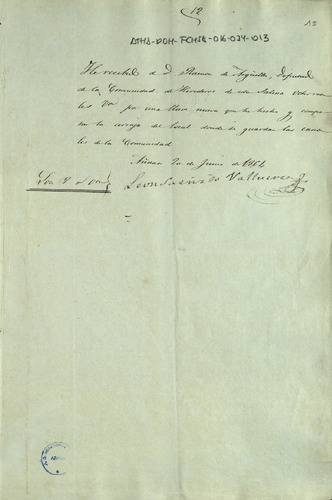 12
13
ATHA-DOH-FCHSA-016-024-013
He recibido de D. Ramon de Argüelles, Diputado
de la Comunidad de Herederos de esta Salina Ocho rea
les Vn por una llave nueva que he hecho y compo
en la cerraja del local donde se guardan las cana
les de la Comunidad
Añana 20 de Junio de
Son 8 rs vn
Leon Saenz de Valluerca